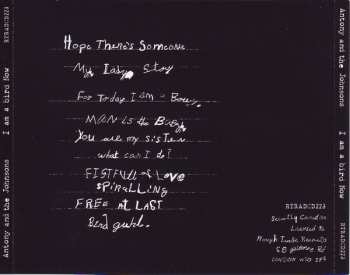 Hope There's Someone
My Lady Story
For Today I am a Boy
MAN is the Baby
You are my sister
what can I do?
FISTFULL of LOVE
SPIRALLING
FREE AT LAST
Bird guhl.
RTRADCD223
Secretly Canadian
Licensed to
Rough Trade Records
66 golborne Rd
LONDON W10 5PS
RTRADCD223
I am a bird Now
Antony and the Johnsons
Antony and the Johnsons
I am a bird Now
RTRADCD223